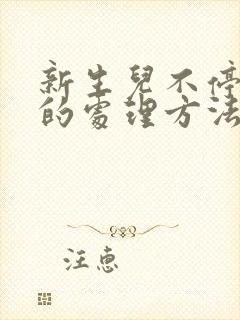 新生兒不停
的處理方法
汪惠